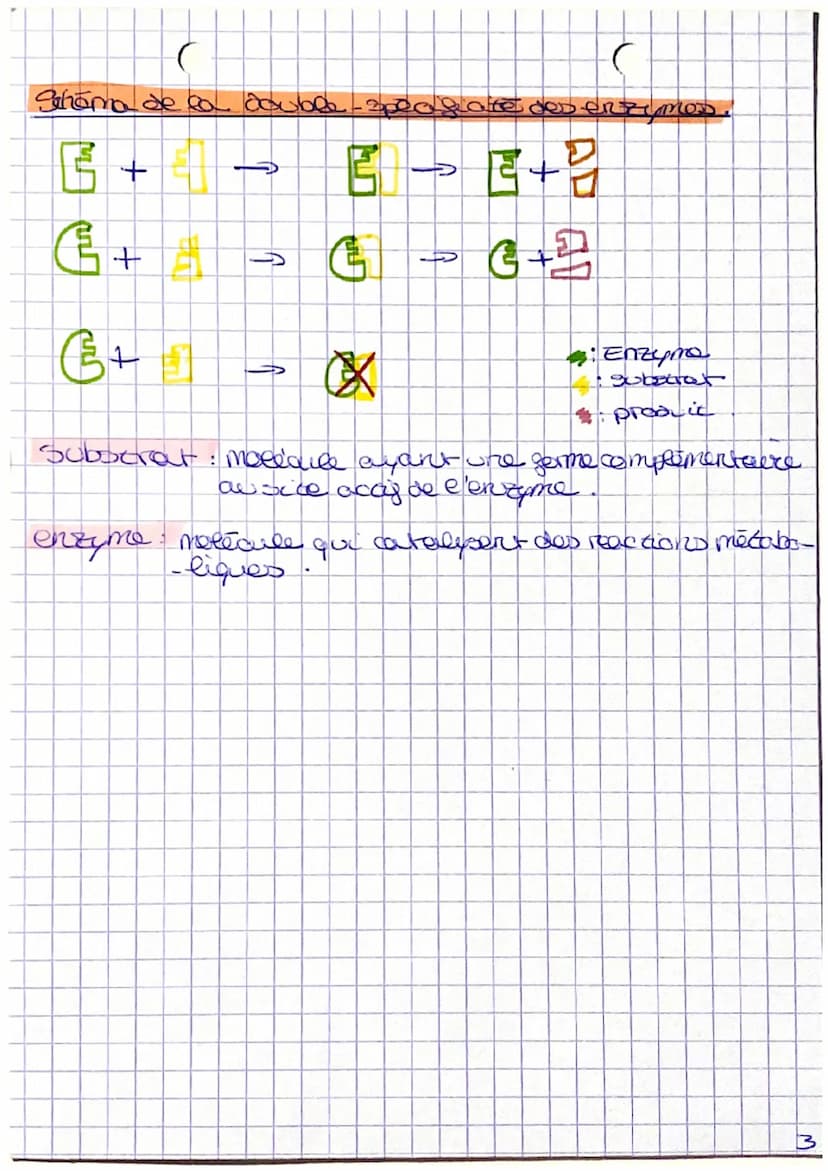 Schéma de la double-spécificité des enzymes.
+ → → +
+ → → +
+ →
: Enzyme
: substrat
: produit.
substrat : molécule ayant une forme complémentaire
au site actif de l'enzyme.
enzyme : molécule qui catalysent des reactions métabo-
-liques.
3